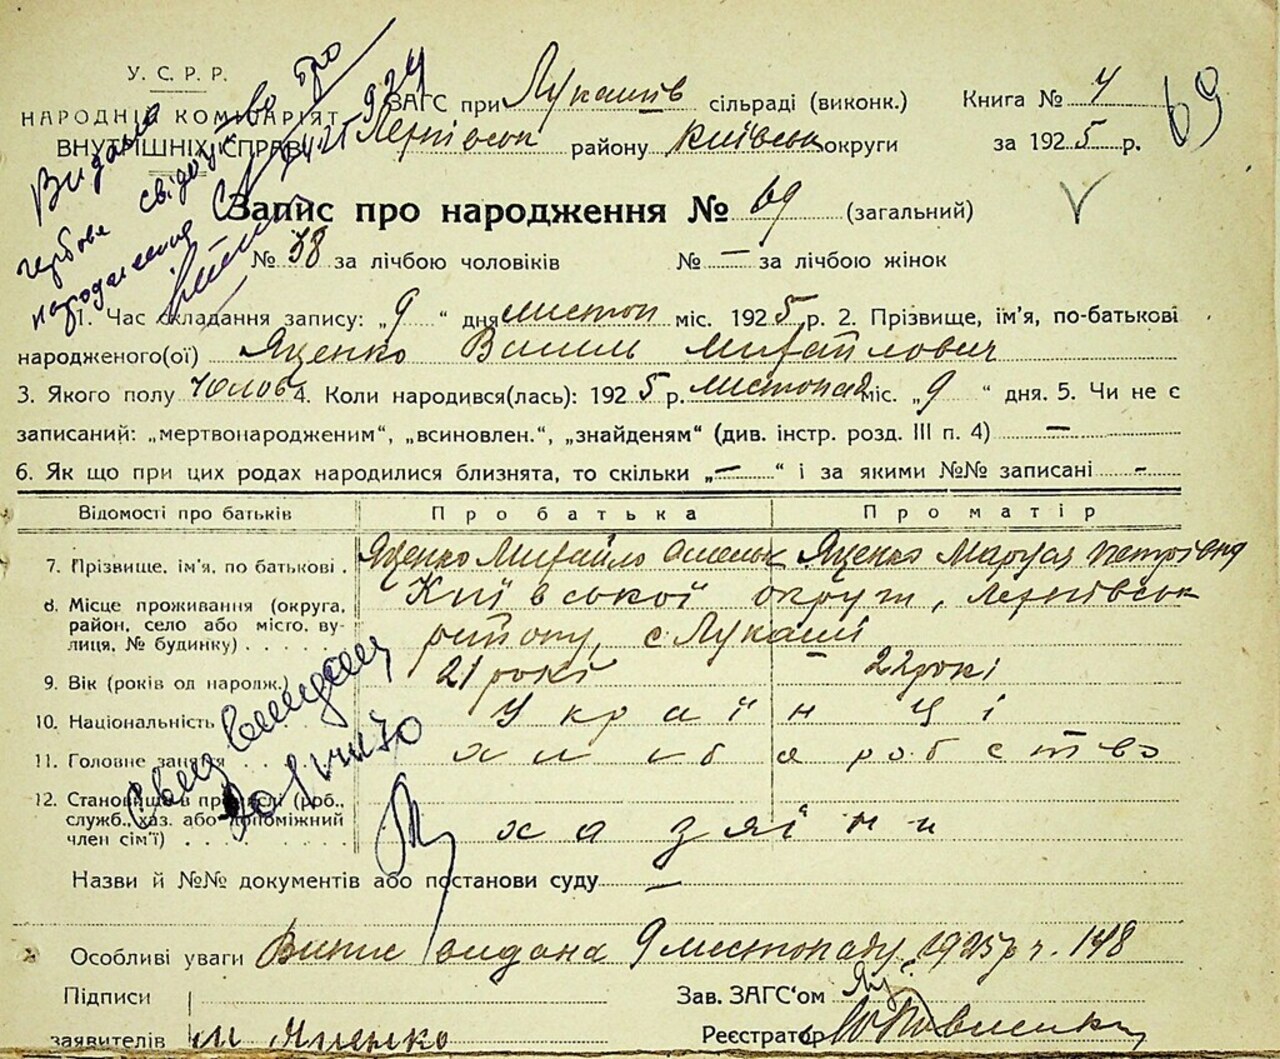 У. С. Р. Р.
НАРОДНІЙ КОМІСАРІЯТ
ВНУТРІШНІХ СПРАВ
ЗАГС при Лукашів сільраді (виконк.)
району Київськ округи
Книга № 4
за 1925 р.
69
Запис про народження № 69 (загальний)
№ 38 за лічбою чоловіків № — за лічбою жінок
Видано
свідоцтво про
народження
1. Час складання запису: „9“ дня листоп міс. 1925 р. 2. Прізвище, ім'я, по-батькові
народженого(ої) Яценко Василь Михайлович
3. Якого полу Чолов 4. Коли народився(лась): 1925 р. листопад міс. „9“ дня. 5. Чи не є
записаний: „мертвонародженим“, „всиновлен.“, „знайденям“ (див. інстр. розд. III п. 4) —
6. Як що при цих родах народилися близнята, то скільки „—“ і за якими №№ записані -
Відомості про батьків Про батька Про матір
7. Прізвище, ім'я, по батькові . Яценко Михайло Яценко Маруся Петрівна
8. Місце проживання (округа, район, село або місто, вулиця, № будинку) . . . . . Київської округи, район, с. Лукаші
9. Вік (років од народж.) 21 рокі 22 рокі
10. Національність Українці
11. Головне заняття . . . хлібаробство
12. Становище в промислі (роб., служб., хаз. або допоміжний член сім'ї) . . . . . . . . хазяїни
Назви й №№ документів або постанови суду —
Особливі уваги Витяг видана 9 листопаду 1925 р ч. 148
Підписи
заявителів М Яценко
Зав. ЗАГС'ом
Реєстратор